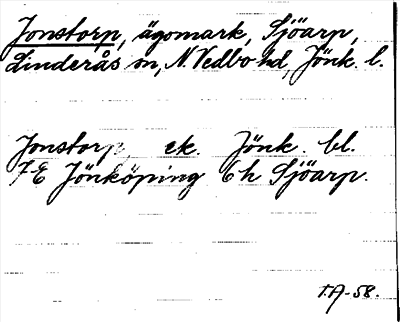 Jonstorp, ägomark, Sjöarp,
Linderås sn, N. Vedbo hd, Jönk. l.
Jonstorp, ek. Jönk. bl.
7 E Jönköping 6 h Sjöarp.
T.A-58.